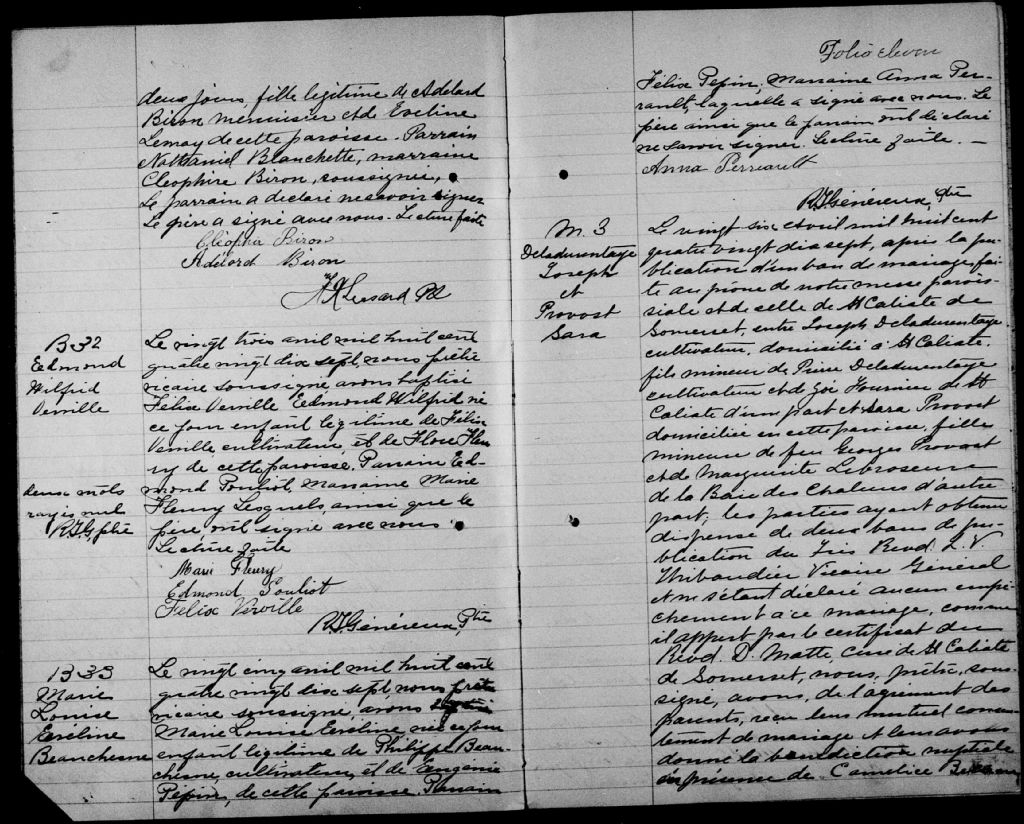 deux jours, fille legitime de Adelard
Biron menuisier et de Eveline
Lemay de cette paroisse. Parrain
Nathaniel Blanchette, marraine
Cleophire Biron, soussignes,
Le parrain a declaré ne savoir signer
Le père a signé avec nous. Lecture faite
Cléophir Biron
Adélard Biron
B 32
Edmond
Wilfrid
Verville
Le vingt trois avril mil huit cent
quatre vingt dix sept, nous prêtre
vicaire soussigné avons baptisé
Félix Verville Edmond Wilfrid né
ce jour enfant legitime de Félix
Verville cultivateur, et de Flore Fleu-
ry de cette paroisse, Parrain Ed-
mond Pouliot, Marraine Marie
Fleury Lesquels ainsi que le
père, ont signé avec nous.
Lecture faite
deux mots
rayés nul
R.J.G. ptre
Marie Fleury
Edmond Pouliot
Felix Verville
R.J. Généreux, Ptre
B 33
Marie
Louise
Eveline
Beauchesne
Le vingt cinq avril mil huit cent
quatre vingt dix sept, nous prêtre
vicaire soussigné, avons baptisé
Marie Louise Eveline née ce jour
enfant legitime de Philippe Beau-
chesne, cultivateur, et de Eugenie
Pepin, de cette paroisse. Parrain
Folio eleven
Félix Pepin, Marraine Anna Per-
rault, laquelle a signé avec nous. Le
père ainsi que le parrain ont declaré
ne savoir signer. Lecture faite. —
Anna Perreault
R.J. Généreux, Ptre
M. 3
Deladurentaye
Joseph
et
Provost
Sara
Le vingt six avril mil huit cent
quatre vingt dix sept, après la pu-
blication d'un ban de mariage, fai-
te au prone de notre messe parois-
siale et de celle de St Caliste de
Somerset, entre Joseph Deladurentaye
cultivateur, domicilié à St Caliste
fils mineur de Pierre Deladurentaye
cultivateur et de Zoé Fournier de St
Caliste d'une part et Sara Provost
domiciliée en cette paroisse, fille
mineure de feu Georges Provost
et de Marguerite
de la Baie des Chaleurs d'autre
part; les parties ayant obtenu
dispense de deux bans de pu-
blication du Très Revd. L. V.
Thibaudier Vicaire Général
et ne s'étant déclaré aucun empê-
chement à ce mariage, comme
il appert par le certificat du
Revd. D. Matte, curé de St Caliste
de Somerset, nous, prêtre, sous-
signé, avons, de l'agrement des
parents, reçu leur mutuel consen-
tement de mariage et leur avons
donné la benediction nuptiale
en présence de